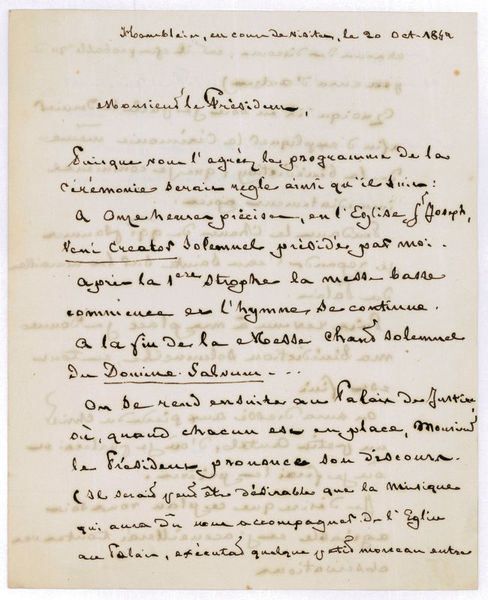 en cours de visites, le 20 Oct. 184
Monsieur le Président,
Puisque vous l'agréez, le programme de la
cérémonie serait réglé ainsi qu'il suit:
A onze heures précises, en l'Eglise St Joseph,
Veni Creator solemnel présidé par moi.
après la 1ère strophe la messe basse
commence et l'hymne se continue.
A la fin de la Messe chant solemnel
du Domine Salvum - . . .
On se rend ensuite au Palais de Justice
où, quand chacun est en place, Monsieur
le Président prononce son discours.
(Il serait peut être désirable que la Musique
qui aura dû nous accompagner de l'Eglise
au Palais, exécutât quelque petit morceau entre